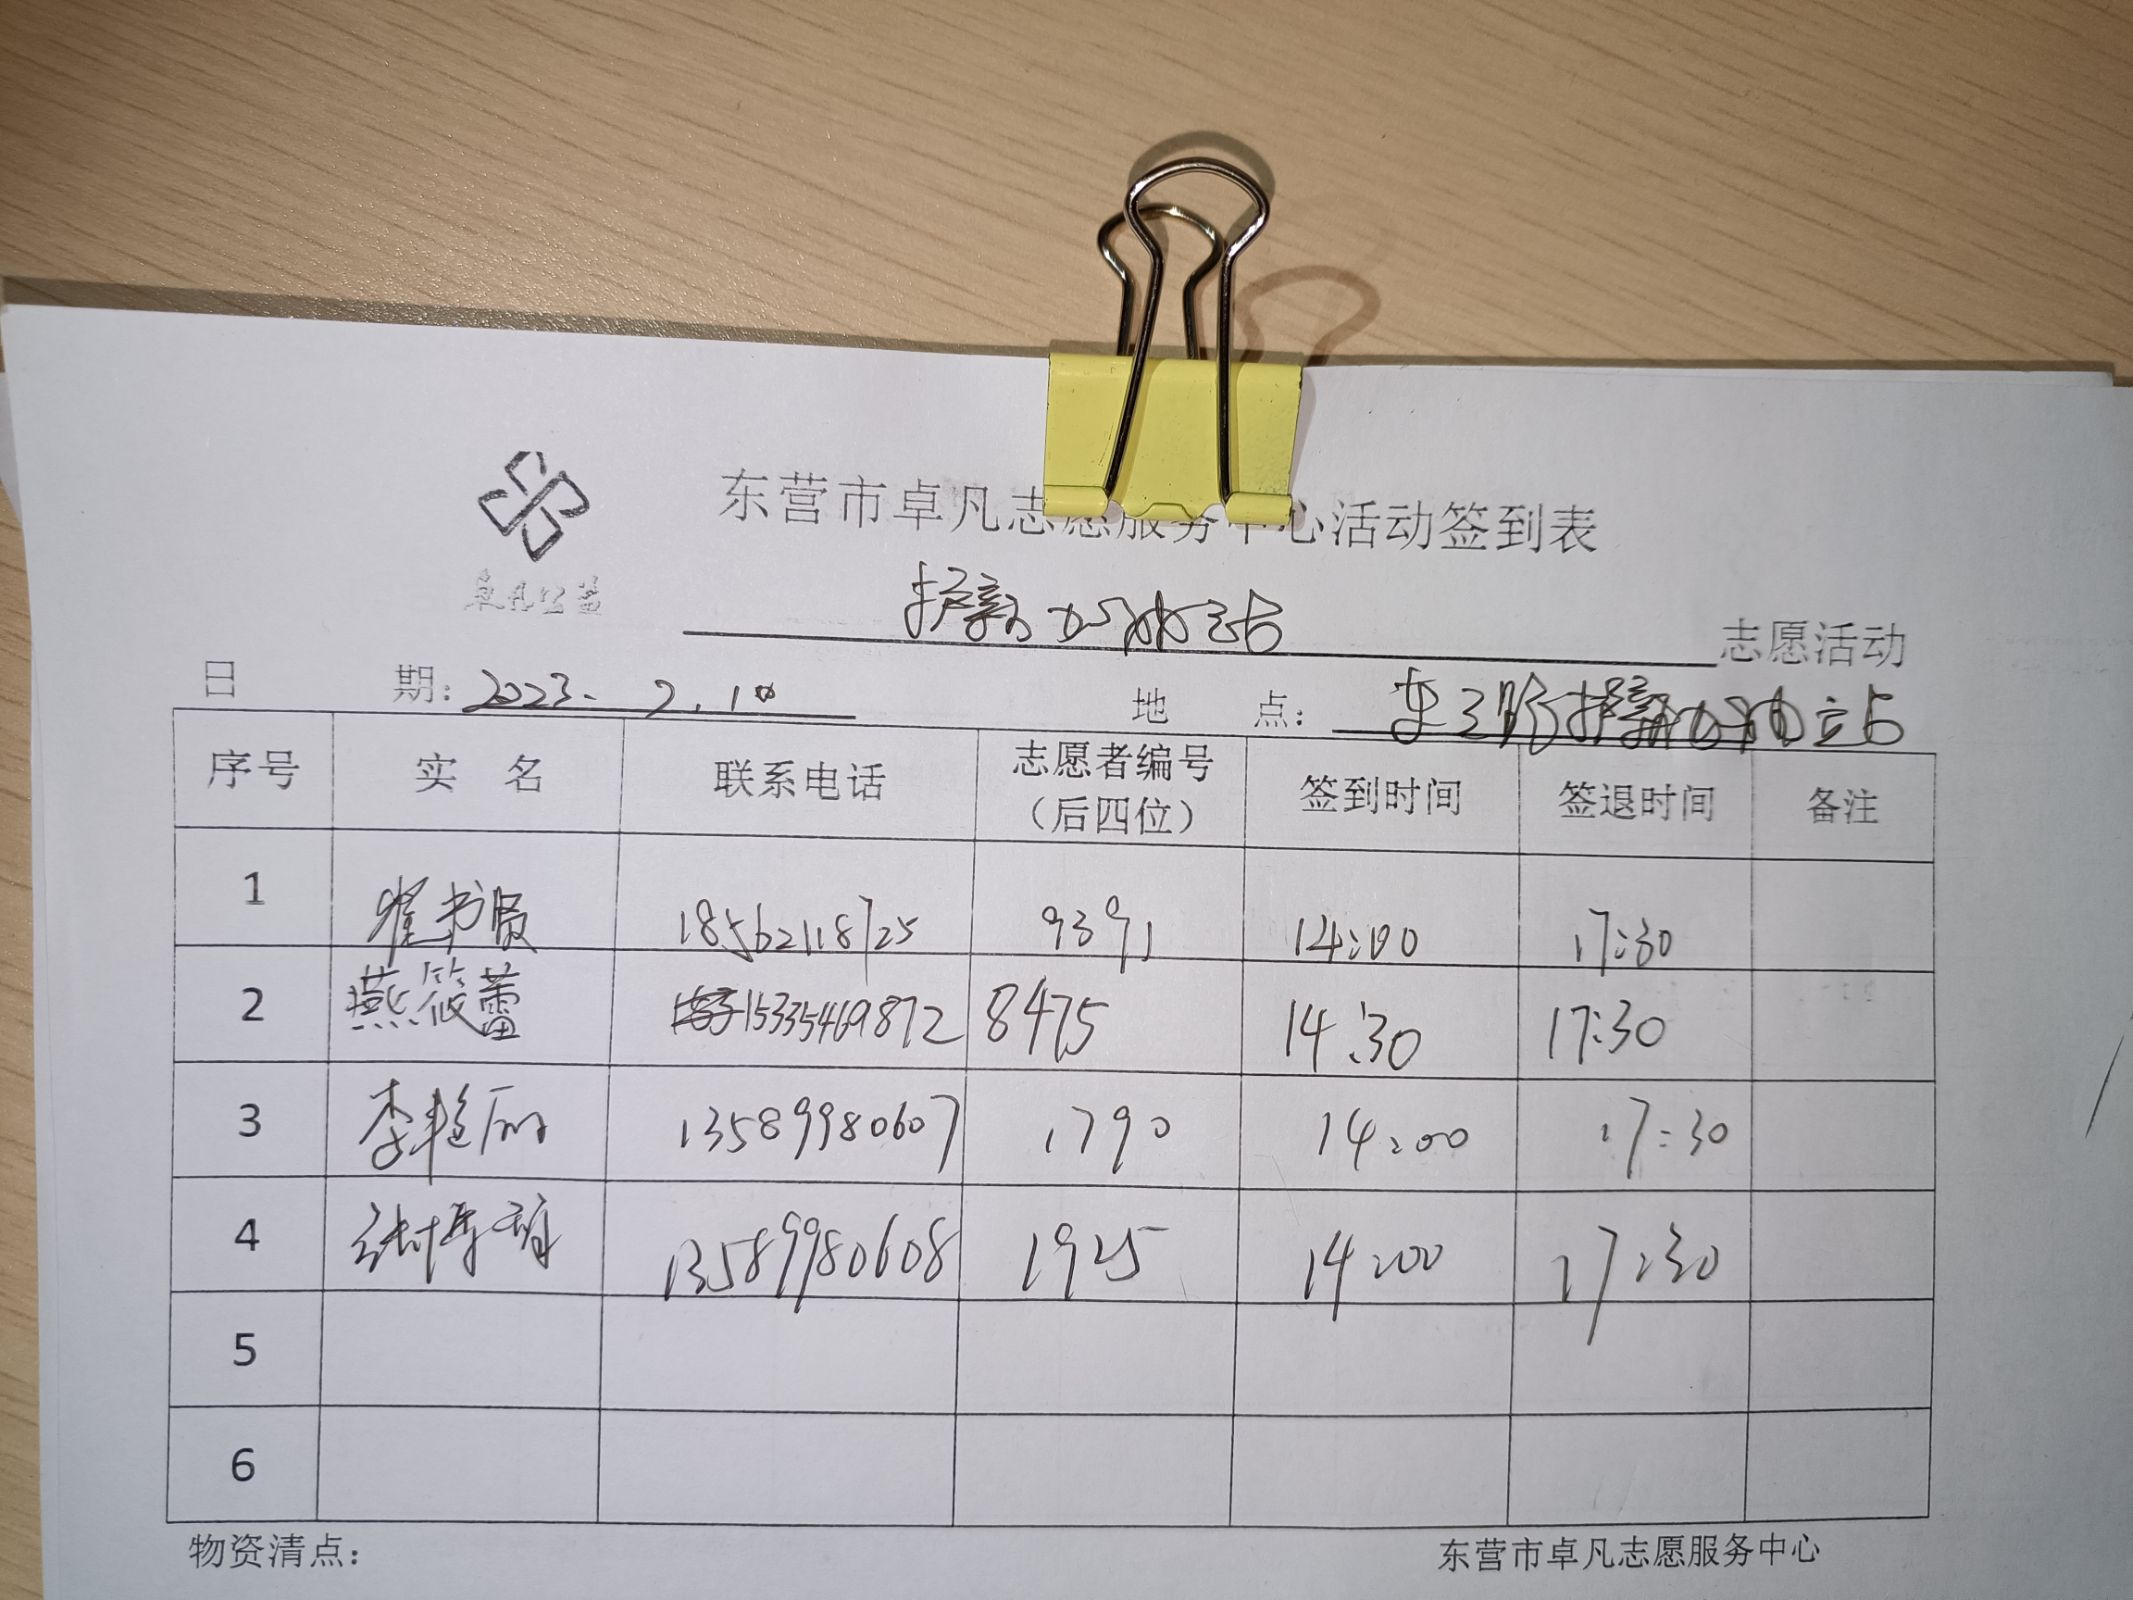 东营市卓凡志愿服务中心活动签到表
卓凡公益
护薪加油站 志愿活动
日期：2023.2.10 地点：东三路护薪加油站
序号 实名 联系电话 志愿者编号（后四位） 签到时间 签退时间 备注
1 书 18562118725 9391 14:00 17:30
2 燕筱蕾 15335469872 8475 14:30 17:30
3 李艳丽 13589980607 1790 14:00 17:30
4 张博 13589980608 1925 14:00 17:30
5
6
物资清点： 东营市卓凡志愿服务中心